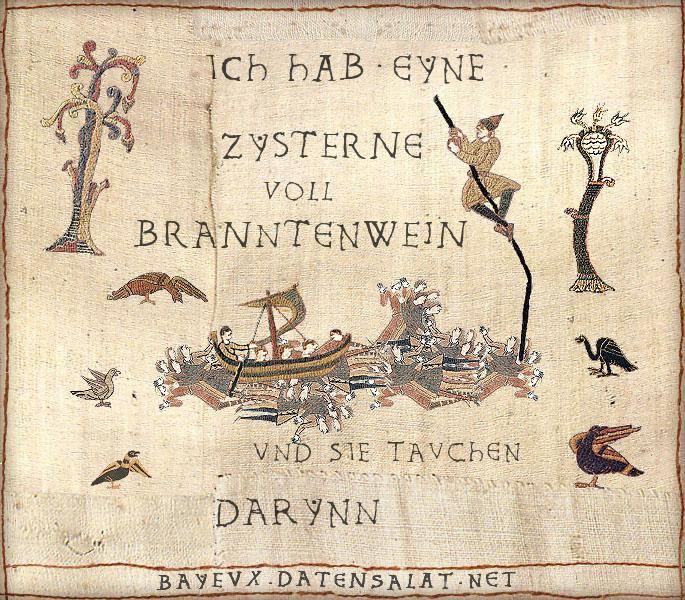 ICh hAB · EYNE
ZYSTERNE
VOLL
BRANNTENWEIN
VND SIE TAVChEN
DARYNN
BAYEVX.DATENSALAT.NET